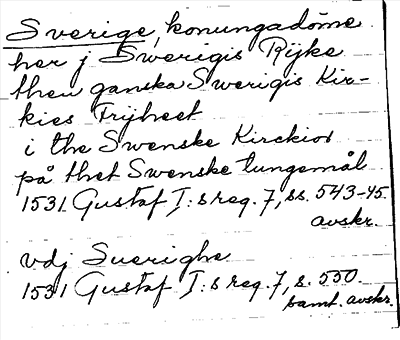 Sverige, konungadöme
her j Swerigis Rijke
then ganska Swerigis Kir-
kies Frijheet
i the Swenske Kirckior
på thet Swenske tungemål
1531. Gustaf I:s reg. 7, ss. 543-45.
avskr.
vdj Suerighe
1531 Gustaf I:s reg. 7, s. 550.
samt. avskr.